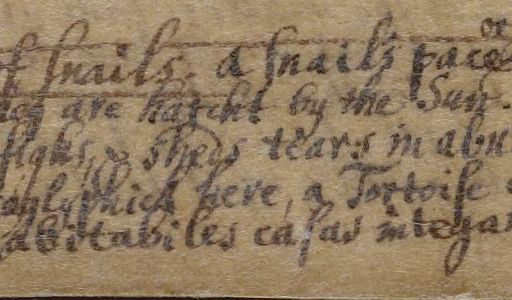 or
of snails. a snail's pace
they are hatcht by the Sun.
sighs, & sheds tears in abu
oglyphick here, a Tortoise
abitabiles casas intega